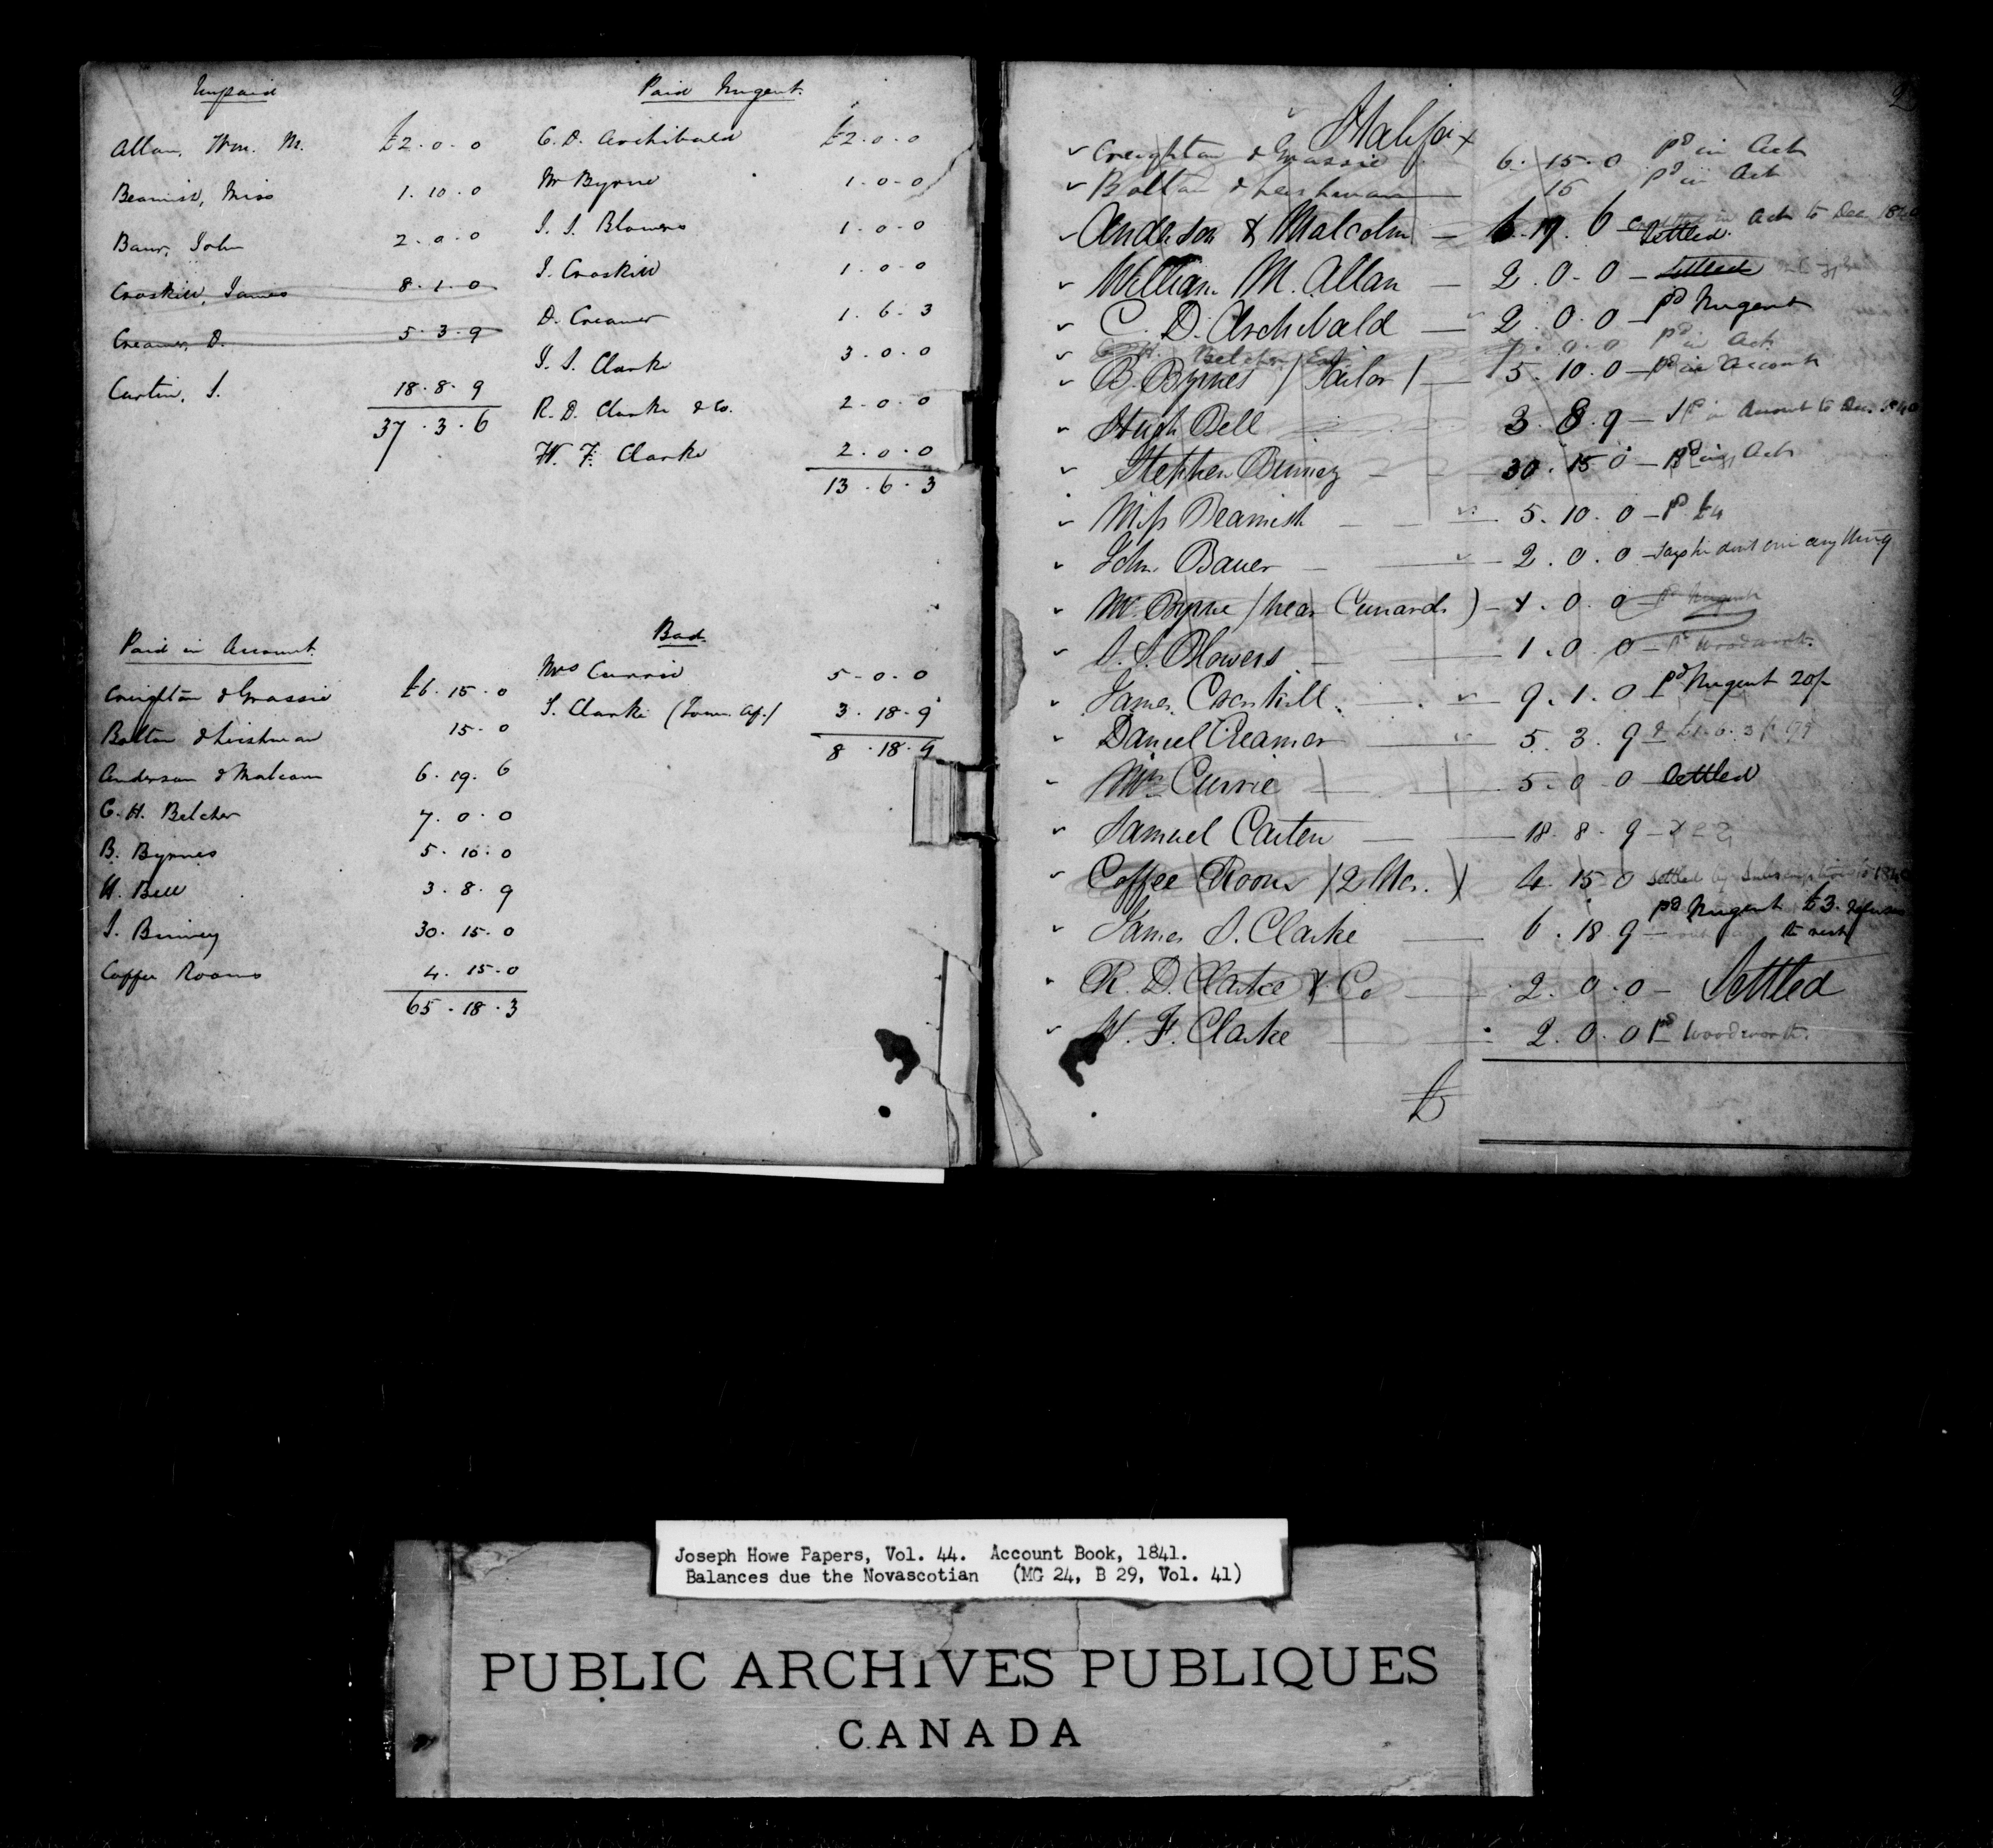 Unpaid
Allan, Wm. M. £2.0.0
Beamish, Miss 1.10.0
Baur, John 2.0.0
Croskill, James 8.1.0
Creamer, D. 5.3.9
Carten, S. 18.8.9
37.3.6
Paid Nugent.
C.D. Archibald £2.0.0
Mr Byrne 1.0.0
S.S. Blowers 1.0.0
J. Croskill 1.0.0
D. Creamer 1.6.3
J.S. Clarke 3.0.0
R.D. Clarke & Co. 2.0.0
W.F. Clarke 2.0.0
13.6.3
Paid in Account.
Creighton & Grassie £6.15.0
Bolton & Leishman 15.0
Anderson & Malcom 6.19.6
C.H. Belcher 7.0.0
B. Byrnes 5.10.0
H. Bell 3.8.9
S. Binney 30.15.0
Coffee Rooms 4.15.0
65.18.3
Bad.
Mrs Currie 5.0.0
J. Clarke 3.18.9
8.18.9
2
Halifax
Creighton & Grassie 6.15.0 pd in Act
Bolton & Leishman 15 pd in Act
Anderson & Malcolm 6.19.6 Settled in Act to Dec 1840
William M. Allan 2.0.0 Settled
C.D. Archibald 2.0.0 pd Nugent
C.H. Belcher 7.0.0 pd in Act
B. Byrnes (Tailor) 5.10.0 pd in account
Hugh Bell 3.8.9 pd in Account to Dec. 1840
Stephen Binney 30.15.0 pd in Act
Miss Beamish 5.10.0 pd £4
John Bauer 2.0.0 says he dont owe any thing
Mr. Byrne (near Cunards) 1.0.0 pd Nugent
S.S. Blowers 1.0.0 pd Woodworth.
James Croskill 9.1.0 pd Nugent 20/-
Daniel Creamer 5.3.9 £1.6.3
Mrs Currie 5.0.0 Settled
Samuel Carten 18.8.9
Coffee Rooms (2 Nos.) 4.15.0 Settled by Subscription to 1840
James S. Clarke 6.18.9 pd Nugent £3. refuses to rest
R.D. Clarke & Co 2.0.0 Settled
W.F. Clarke 2.0.0 pd Woodworth.
£
Joseph Howe Papers, Vol. 44. Account Book, 1841.
Balances due the Novascotian (MG 24, B 29, Vol. 41)
PUBLIC ARCHIVES PUBLIQUES
CANADA